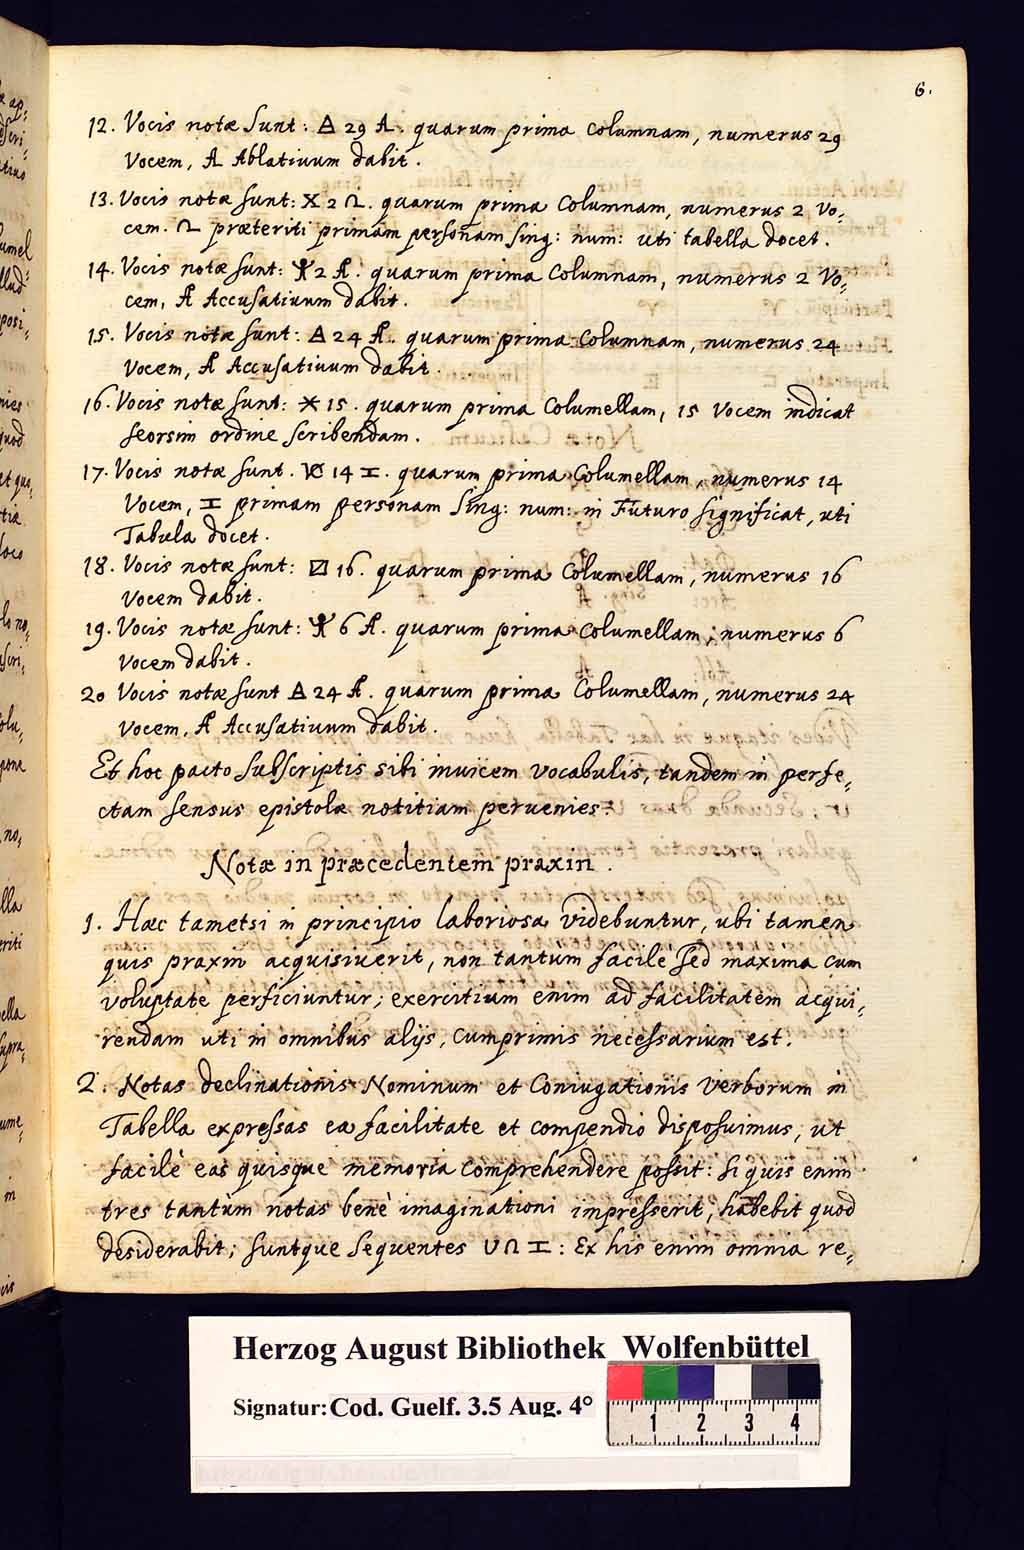 6.
12. Vocis notæ sunt: 29 A. quarum prima Columnam, numerus 29
Vocem, A Ablatiuum dabit.
13. Vocis notæ sunt: X 2 Ω. quarum prima Columnam, numerus 2 Vo:
cem. Ω præteriti primam personam sing: num: uti tabella docet.
14. Vocis notæ sunt: 2 A. quarum prima Columnam, numerus 2 Vo:
cem, A Accusatiuum dabit.
15. Vocis notæ sunt: 24 A. quarum prima Columnam, numerus 24
Vocem, A Accusatiuum dabit.
16. Vocis notæ sunt: 15. quarum prima Columellam, 15 Vocem indicat
seorsim ordine scribendam.
17. Vocis notæ sunt. 14 I. quarum prima Columellam, numerus 14
Vocem, I primam personam Sing: num: in Futuro significat, uti
Tabula docet.
18. Vocis notæ sunt: 16. quarum prima Columellam, numerus 16
Vocem dabit.
19. Vocis notæ sunt: 6 A. quarum prima Columellam, numerus 6
Vocem dabit.
20 Vocis notæ sunt 24 A. quarum prima Columellam, numerus 24
Vocem, A Accusatiuum dabit.
Et hoc pacto subscriptis sibi inuicem vocabulis, tandem in perfe:
ctam sensus epistolæ notitiam peruenies.
Notæ in præcedentem praxin.
1. Hæc tametsi in principio laboriosa videbuntur, ubi tamen
quis praxin acquisiuerit, non tantum facilè sed maxima cum
voluptate perficiuntur; exercitium enim ad facilitatem acqui:
rendam uti in omnibus alijs, cumprimis necessarium est.
2. Notas declinationis Nominum et Coniugationis Verborum in
Tabella expressas ea facilitate et compendio disposuimus, ut
facilè eas quisque memoria comprehendere possit: si quis enim
tres tantùm notas benè imaginationi impresserit, habebit quod
desiderabit; suntque sequentes U Ω I: Ex his enim omnia re:
Herzog August Bibliothek Wolfenbüttel
Signatur: Cod. Guelf. 3.5 Aug. 4°
1 2 3 4